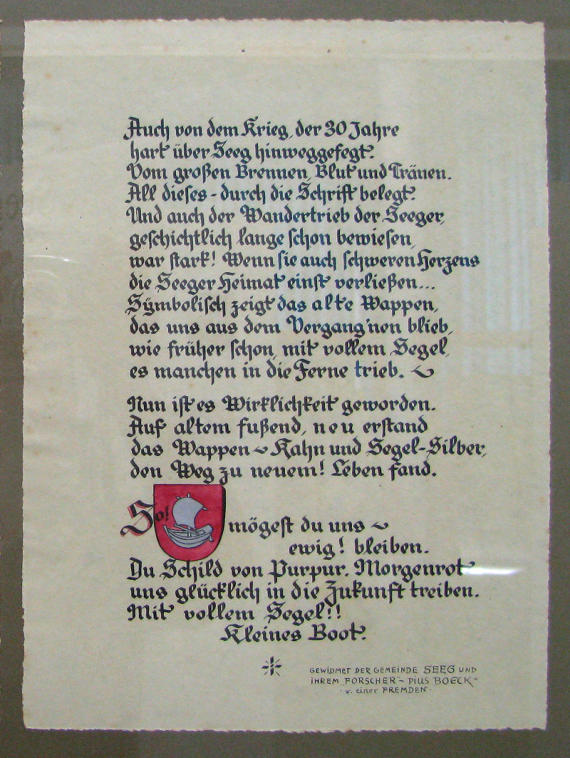 Auch von dem Krieg, der 30 Jahre
hart über Seeg hinweggefegt.
Vom großen Brennen, Blut und Tränen.
All dieses - durch die Schrift belegt.
Und auch der Wandertrieb der Seeger,
geschichtlich lange schon bewiesen,
war stark! Wenn sie auch schweren Herzens
die Seeger Heimat einst verließen...
Symbolisch zeigt das alte Wappen,
das uns aus dem Vergang'nen blieb,
wie früher schon, mit vollem Segel,
es manchen in die Ferne trieb. ~
Nun ist es Wirklichkeit geworden.
Auf altem fußend, neu erstand
das Wappen ~ Kahn und Segel-Silber,
den Weg zu neuem! Leben fand.
So! mögest du uns ~
ewig! bleiben.
Du Schild von Purpur. Morgenrot
uns glücklich in die Zukunft treiben.
Mit vollem Segel!!
Kleines Boot.
GEWIDMET DER GEMEINDE SEEG UND
IHREM FORSCHER - PIUS BOECK -
- v. einer FREMDEN -